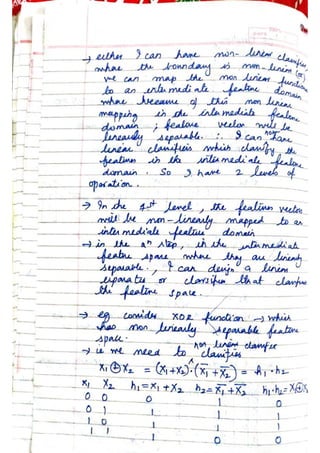 → either I can have non-linear classifier
where the boundary is non-linear (or)
we can map the non linear function
to an intermediate feature domain
where because of this non linear
mapping in the intermediate feature
domain; feature vector will be
linearly separable. ∴ I can have
linear classifiers which classify the
features in the intermediate feature
domain. So I have 2 levels of
operation.
→ In the 1st level, the features vector
will be non-linearly mapped to an
intermediate feature domain
→ in the 2nd step, in the intermediate
feature space where they are linearly
separable, I can design a linear
separator or classifier that classifies
the feature space.
→ eg consider XOR function → which
has non linearly separable feature
space.
→ ie we need non linear classifier to classify
X₁ ⊕ X₂ = (X₁+X₂)·(X̅₁+X̅₂) = h₁·h₂
X₁ X₂ h₁=X₁+X₂ h₂=X̅₁+X̅₂ h₁·h₂=X₁⊕X₂
0 0 0 1 0
0 1 1 1 1
1 0 1 1 1
1 1 1 0 0